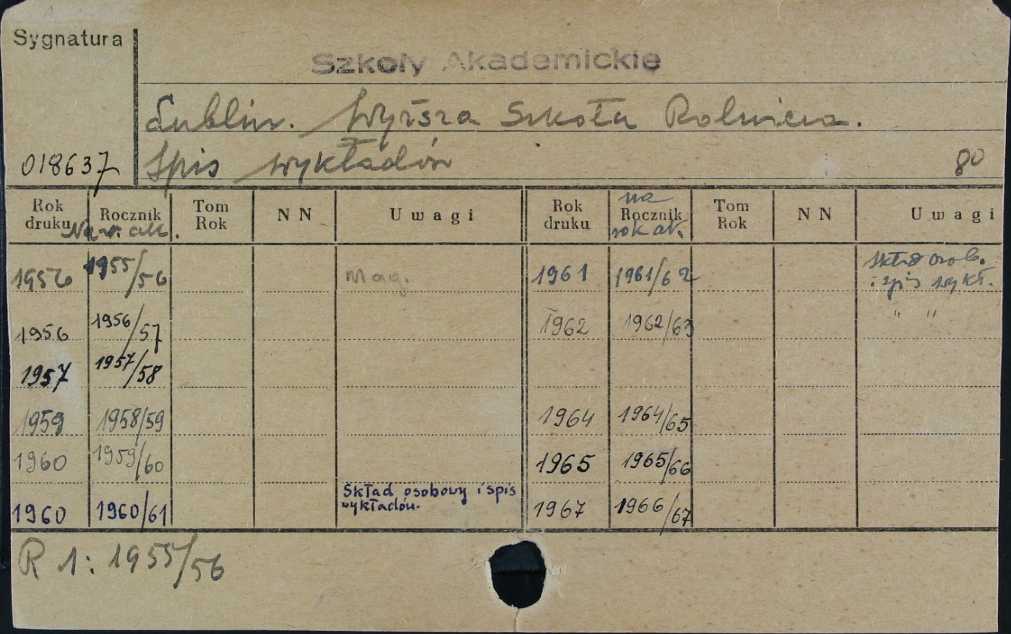 Sygnatura
Szkoły Akademickie
Lublin. Wyższa Szkoła Rolnicza.
018637 Spis wykładów 80
Rok druku Rocznik Na r. ak. Tom Rok NN Uwagi Rok druku na Rocznik rok ak. Tom Rok NN Uwagi
1956 1955/56 Mag. 1961 1961/62 Skład osob. i spis wykł.
1956 1956/57 1962 1962/63 " "
1957 1957/58
1959 1958/59 1964 1964/65
1960 1959/60 1965 1965/66
1960 1960/61 Skład osobowy i spis wykładów. 1967 1966/67
R 1: 1955/56